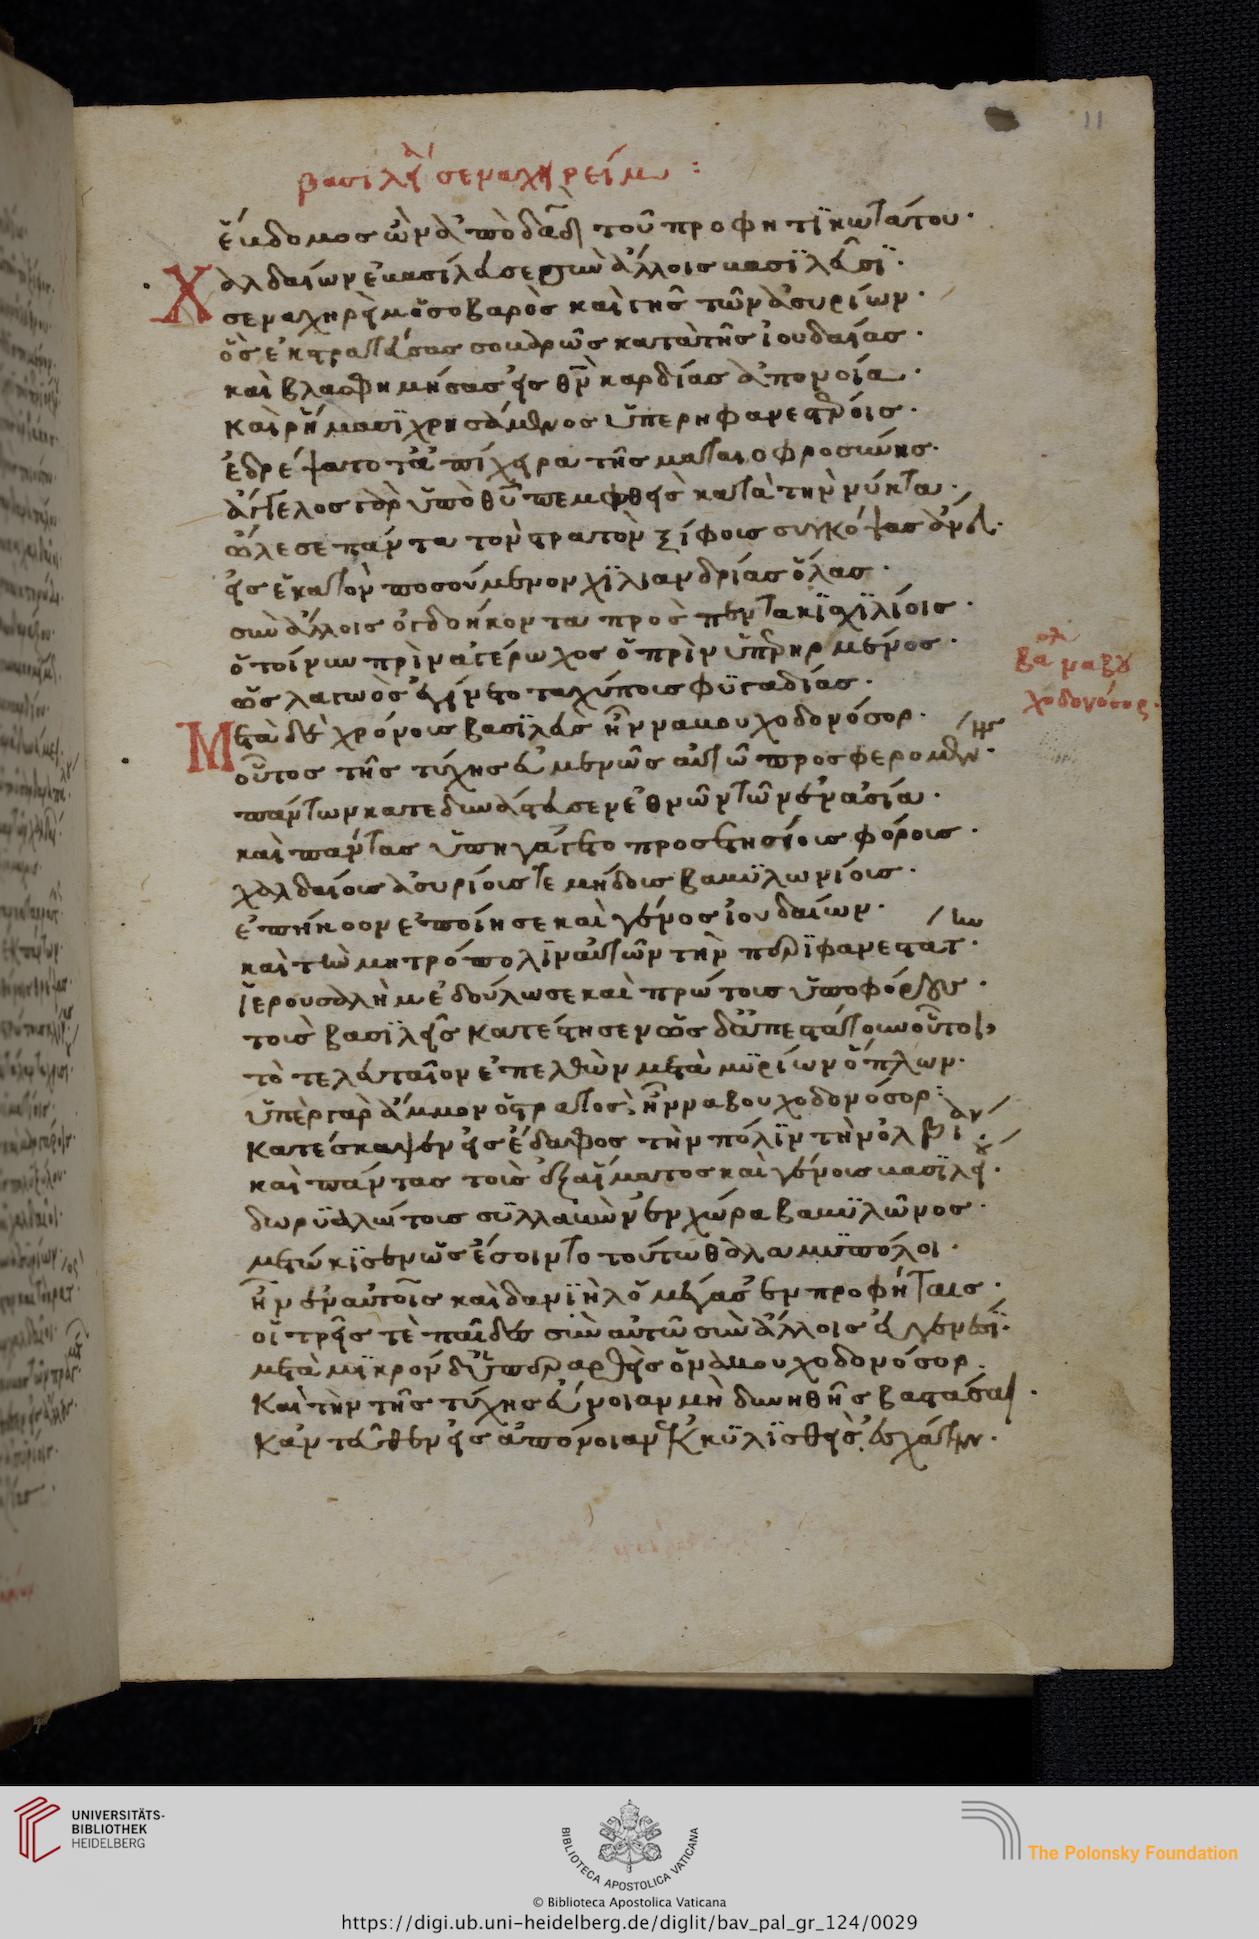 11
βασιλεία σεναχηρείμ :
ἕβδομος ὢν ἀπὸ δαδ τοῦ προφητικωτάτου·
Χαλδαίων ἐβασίλευσε σὺν ἄλλοις βασϊλεῦσϊ·
σεναχηρεὶμ ὁ σοβαρὸς καὶ γῆς τῶν ἀσυρίων·
ὃς ἐκστρατεύσας σοβαρῶς κατὰ τῆς ἰουδαίας·
καὶ βλασφημήσας εἰς θν καρδίας ἀπονοία·
καὶ ῥήμασϊ χρησάμενος ὑπερηφανεστέροις·
ἐδρέψατο τἀπίχειρα τῆς ματαιοφροσύνης·
ἄγγελος γὰρ ὑπὸ θυ πεμφθεὶς κατὰ τὴν νύκτα·
ὤλεσε πάντα τὸν στρατὸν ξίφοις συγκόψας
εἰς ἑκατὸν ποσούμενον χϊλιανδρίας ὅλας·
σὺν ἄλλοις ὀγδοήκοντα πρὸς πεντακϊσχϊλίοις·
ὁ τοίνυν πρὶν ἀγέρωχος ὁ πρὶν ὑπερηρμένος·
ὡς λαγωὸς ἐγίνετο ταχύπους φϋγαδίας·
βα ναβου
χοδονόσορ·
Μετὰ δὲ χρόνοις βασϊλεὺς ἦν ναβουχοδονόσορ·
οὗτος τῆς τύχης εὐμενῶς αὐτῶ προσφερομένης·
πάντων κατεδυνάστευσεν ἐθνῶν τῶν ἐν ἀσία·
καὶ πάντας ὑπηγάγετο προσετησίοις φόροις·
χαλδαίοις ἀσυρίοις τε μήδοις βαβϋλωνίοις·
ἐπήκοον ἐποίησε καὶ γένος ἰουδαίων·
καὶ τὴν μητρόπολϊν αὐτῶν τὴν πολϊφανεστάτην·
ἱερουσαλὴμ ἐδούλωσε καὶ πρώτοις ὑποφόρους·
τοὺς βασϊλεῖς κατέστησεν ὡς δ' ἀπεστάτουν οὗτοι,
τὸ τελευταῖον ἐπελθὼν μετὰ μϋρίων ὅπλων·
ὑπὲρ γὰρ ἄμμον ὁ στρατὸς, ἦν ναβουχοδονόσορ·
κατέσκαψεν εἰς ἔδαφος τὴν πόλϊν τὴν ὀλβίαν·
καὶ πάντας τοὺς ἐξ αἵματος καὶ γένους βασϊλείου·
δορϋαλώτους σϋλλαβὼν ἐν χώρα βαβϋλῶνος·
μετώκϊσεν ὡς ἔσοιντο τούτω θαλαμϋπόλοι·
ἦν ἐν αὐτοῖς καὶ δανϊὴλ ὁ μέγας ἐν προφήταις·
οἱ τρεῖς τὲ παῖδες σὺν αὐτῶ σὺν ἄλλοις εὐγενέσϊ·
μετὰ μϊκρὸν δ' ὑπεραρθεὶς ὁ ναβουχοδονόσορ·
καὶ τὴν τῆς τύχης εὔνοιαν μὴ δυνηθῆς βαστάσαι·
κἀντεῦθεν εἰς ἀπόνοιαν ἐκκϋλϊσθεὶς ἐσχάτην·
UNIVERSITÄTS-
BIBLIOTHEK
HEIDELBERG
BIBLIOTECA APOSTOLICA VATICANA
© Biblioteca Apostolica Vaticana
The Polonsky Foundation
https://digi.ub.uni-heidelberg.de/diglit/bav_pal_gr_124/0029